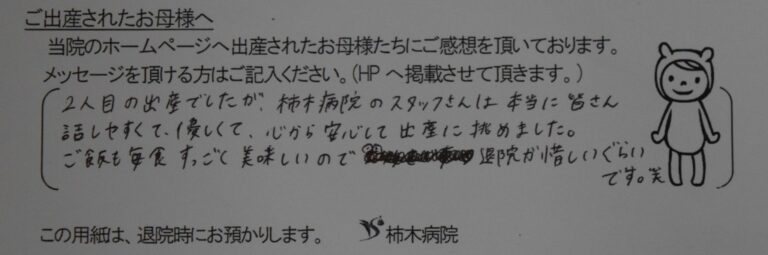 ご出産されたお母様へ
当院のホームページへ出産されたお母様たちにご感想を頂いております。
メッセージを頂ける方はご記入ください。(HPへ掲載させて頂きます。)
2人目の出産でしたが、柿木病院のスタッフさんは本当に皆さん
話しやすくて、優しくて、心から安心して出産に挑めました。
ご飯も毎食すっごく美味しいので退院が惜しいぐらい
です。笑
この用紙は、退院時にお預かりします。
柿木病院